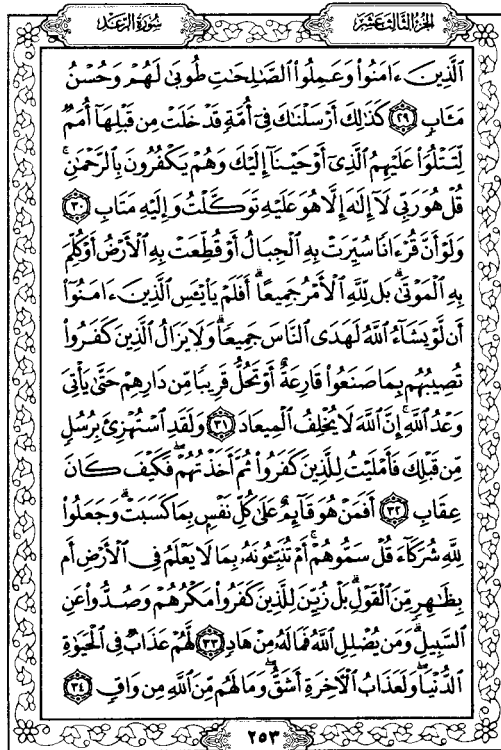 الجزء الثالث عشر
سورة الرعد
ٱلَّذِينَ ءَامَنُواْ وَعَمِلُواْ ٱلصَّٰلِحَٰتِ طُوبَىٰ لَهُمْ وَحُسْنُ
مَـَٔابٍ ٢٩ كَذَٰلِكَ أَرْسَلْنَٰكَ فِىٓ أُمَّةٍ قَدْ خَلَتْ مِن قَبْلِهَآ أُمَمٌ
لِّتَتْلُوَاْ عَلَيْهِمُ ٱلَّذِىٓ أَوْحَيْنَآ إِلَيْكَ وَهُمْ يَكْفُرُونَ بِٱلرَّحْمَٰنِ ۚ
قُلْ هُوَ رَبِّى لَآ إِلَٰهَ إِلَّا هُوَ عَلَيْهِ تَوَكَّلْتُ وَإِلَيْهِ مَتَابِ ٣٠
وَلَوْ أَنَّ قُرْءَانًا سُيِّرَتْ بِهِ ٱلْجِبَالُ أَوْ قُطِّعَتْ بِهِ ٱلْأَرْضُ أَوْ كُلِّمَ
بِهِ ٱلْمَوْتَىٰ ۗ بَل لِّلَّهِ ٱلْأَمْرُ جَمِيعًا ۗ أَفَلَمْ يَاْيْـَٔسِ ٱلَّذِينَ ءَامَنُوٓاْ
أَن لَّوْ يَشَآءُ ٱللَّهُ لَهَدَى ٱلنَّاسَ جَمِيعًا ۗ وَلَا يَزَالُ ٱلَّذِينَ كَفَرُواْ
تُصِيبُهُم بِمَا صَنَعُواْ قَارِعَةٌ أَوْ تَحُلُّ قَرِيبًا مِّن دَارِهِمْ حَتَّىٰ يَأْتِىَ
وَعْدُ ٱللَّهِ ۚ إِنَّ ٱللَّهَ لَا يُخْلِفُ ٱلْمِيعَادَ ٣١ وَلَقَدِ ٱسْتُهْزِئَ بِرُسُلٍ
مِّن قَبْلِكَ فَأَمْلَيْتُ لِلَّذِينَ كَفَرُواْ ثُمَّ أَخَذْتُهُمْ ۖ فَكَيْفَ كَانَ
عِقَابِ ٣٢ أَفَمَنْ هُوَ قَآئِمٌ عَلَىٰ كُلِّ نَفْسٍۭ بِمَا كَسَبَتْ ۗ وَجَعَلُواْ
لِلَّهِ شُرَكَآءَ قُلْ سَمُّوهُمْ ۚ أَمْ تُنَبِّـُٔونَهُۥ بِمَا لَا يَعْلَمُ فِى ٱلْأَرْضِ أَم
بِظَٰهِرٍ مِّنَ ٱلْقَوْلِ ۗ بَلْ زُيِّنَ لِلَّذِينَ كَفَرُواْ مَكْرُهُمْ وَصُدُّواْ عَنِ
ٱلسَّبِيلِ ۗ وَمَن يُضْلِلِ ٱللَّهُ فَمَا لَهُۥ مِنْ هَادٍ ٣٣ لَّهُمْ عَذَابٌ فِى ٱلْحَيَوٰةِ
ٱلدُّنْيَا ۖ وَلَعَذَابُ ٱلْأَخِرَةِ أَشَقُّ ۖ وَمَا لَهُم مِّنَ ٱللَّهِ مِن وَاقٍ ٣٤
٢٥٣